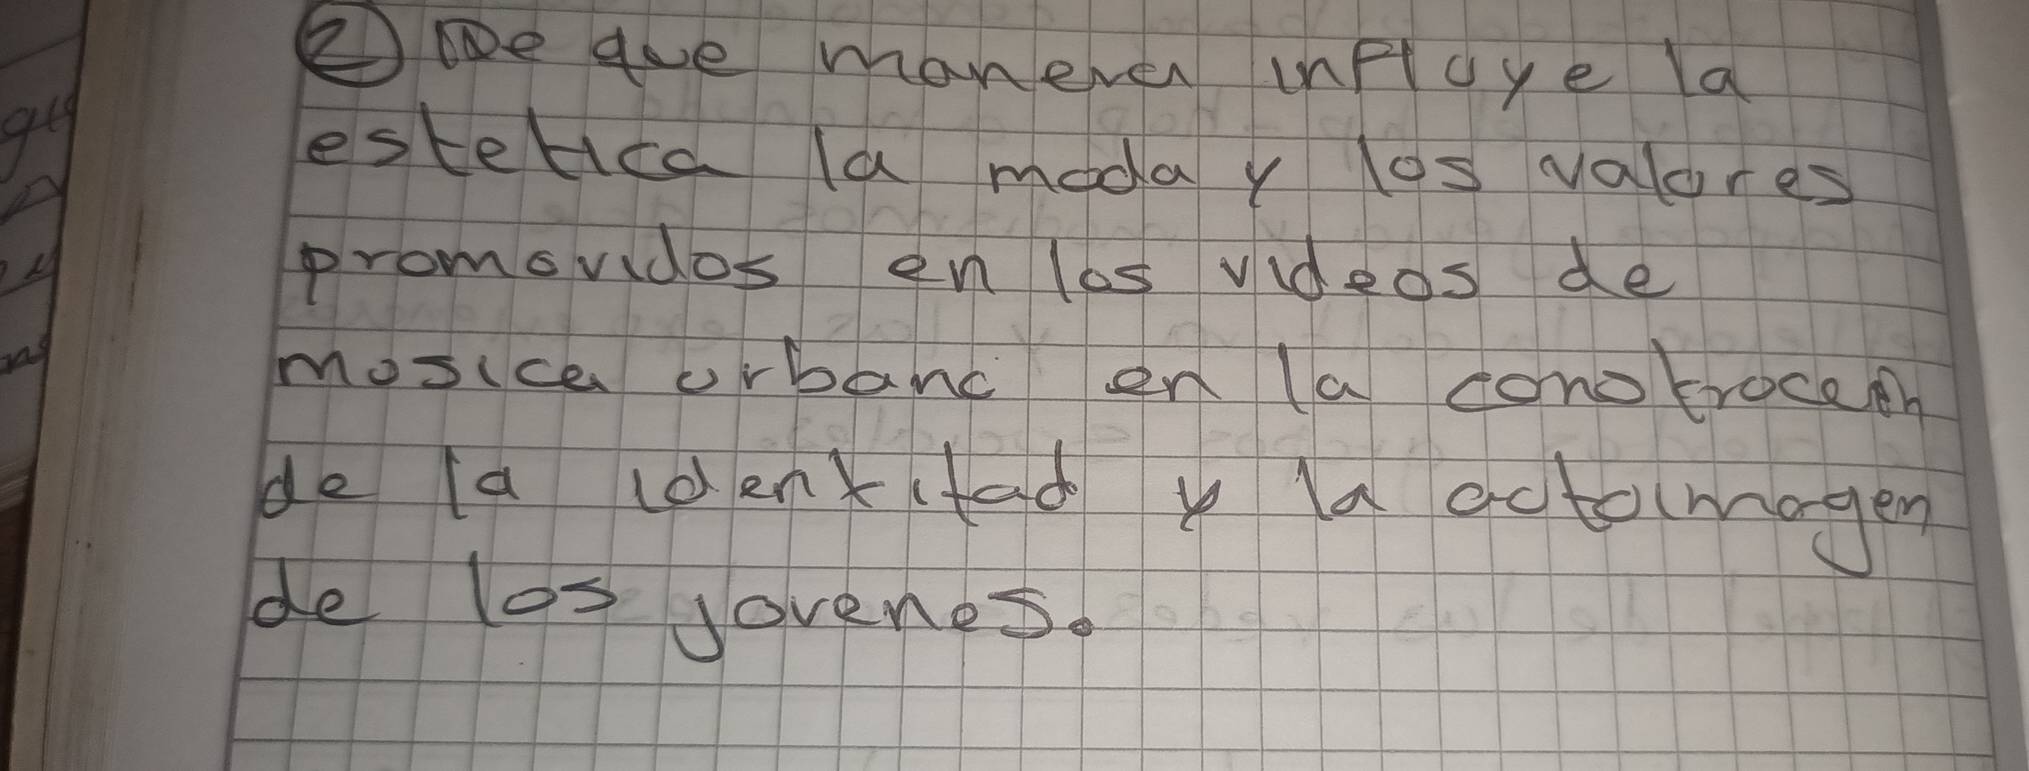 ② De que manera influye la
estetica la moda y los valores
promovidos en los videos de
mosica urbana en la conotrocen
de la identitad y la autoimagen
de los jovenes.